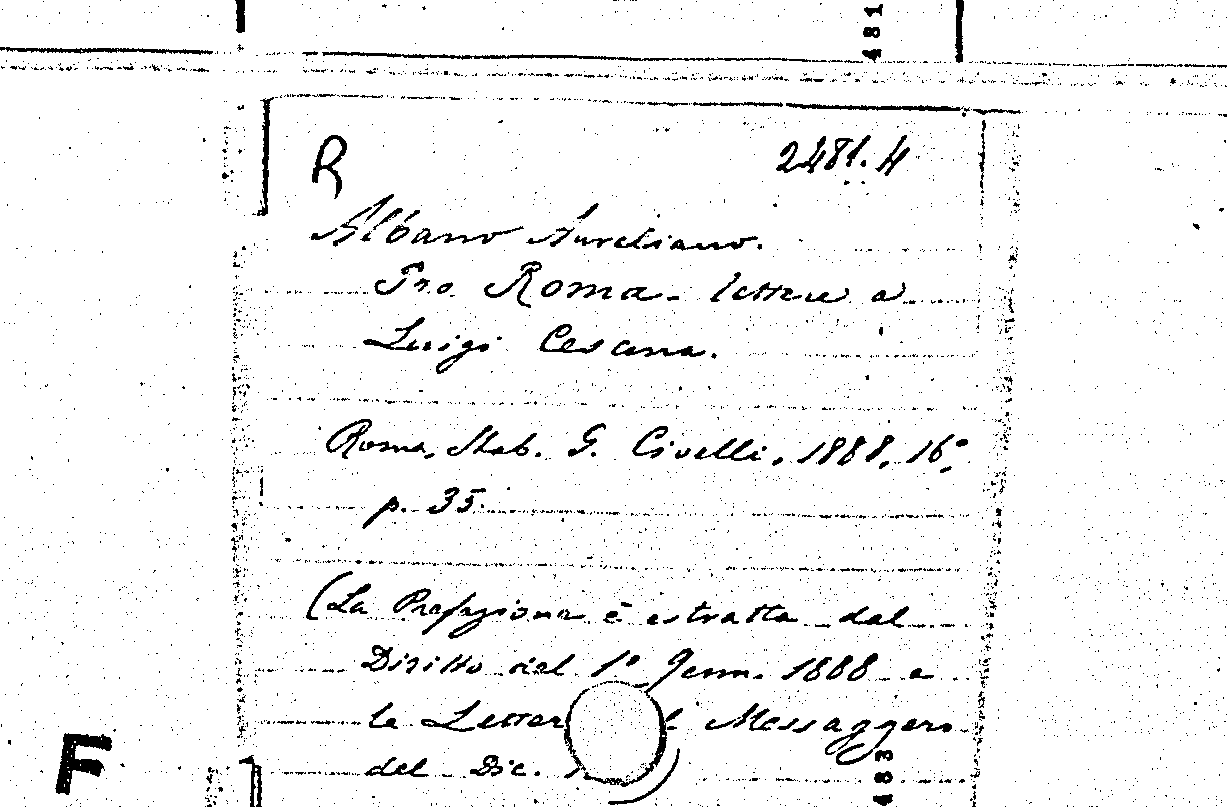 481
R 2481.4
Albano Aureliano.
Pro Roma - lettere a
Luigi Cesana.
Roma, Stab. G. Civelli, 1888, 16°.
p. 35.
(La Prefazione è estratta dal
Diritto del 1° Genn. 1888 e
le Letter Messaggero
del Dic.
F
483